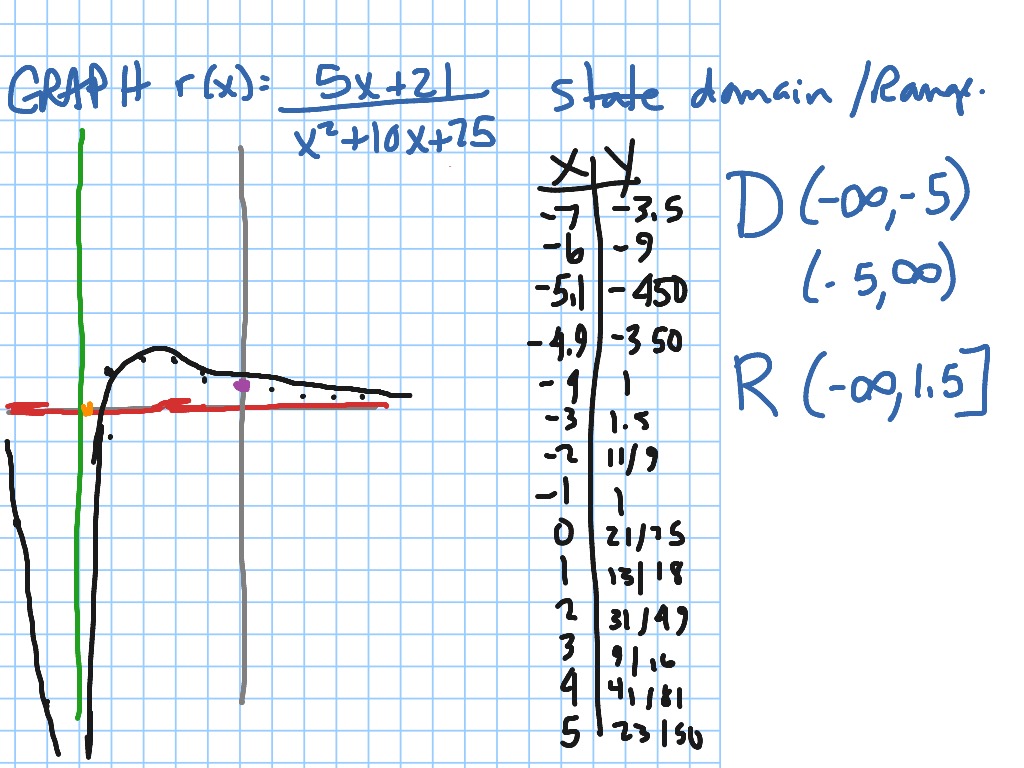 GRAPH r(x)= 5x+21 state domain /Range.
x²+10x+25
X Y
-7 -3.5
-6 -9
-5.1 -450
-4.9 -350
-4 1
-3 1.5
-2 11/9
-1 1
0 21/25
1 13/18
2 31/49
3 9/16
4 41/81
5 23/50
D (-∞,-5)
(-5,∞)
R (-∞,1.5]